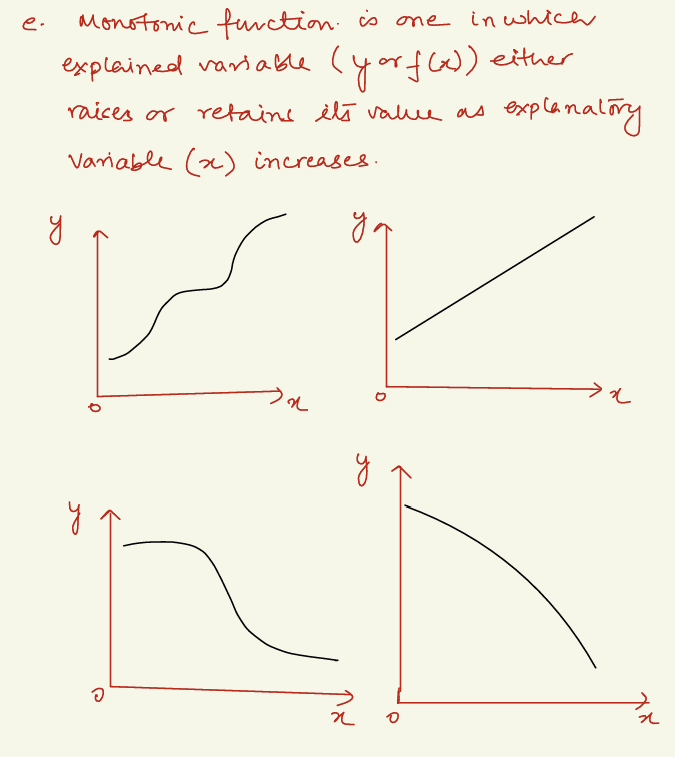 e. Monotonic function is one in which
explained variable (y or f(x)) either
raises or retains its value as explanatory
variable (x) increases.
y
y
o
x
o
x
y
y
o
x
o
x